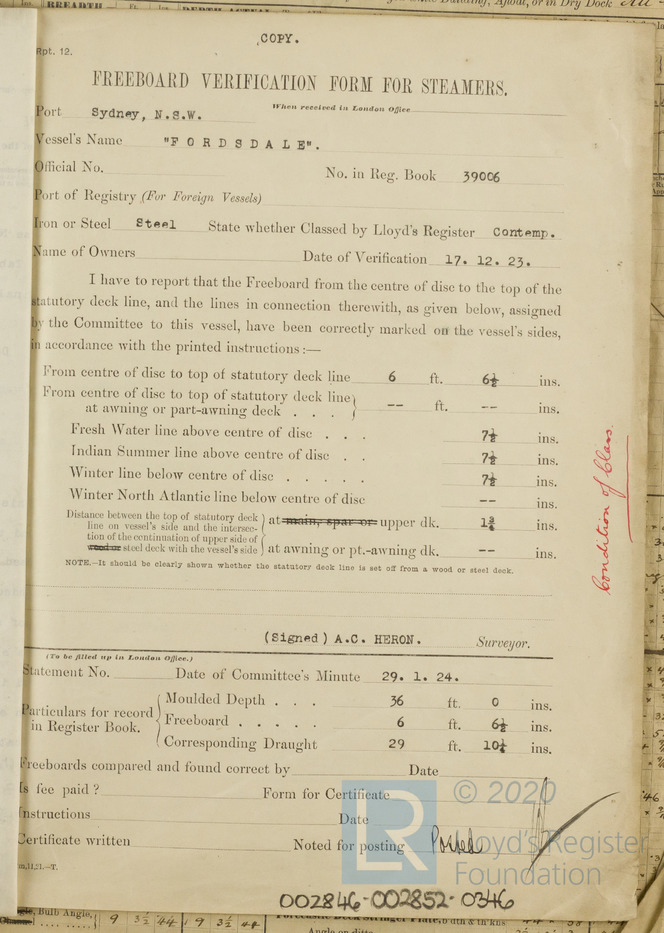 BREADTH
DEPTH ACTUAL
Afloat, or in Dry Dock
COPY.
Rpt. 12.
FREEBOARD VERIFICATION FORM FOR STEAMERS.
Port Sydney, N.S.W. When received in London Office
Vessel's Name "F O R D S D A L E".
Official No. No. in Reg. Book 39006
Port of Registry (For Foreign Vessels)
Iron or Steel Steel State whether Classed by Lloyd's Register Contemp.
Name of Owners Date of Verification 17. 12. 23.
I have to report that the Freeboard from the centre of disc to the top of the
statutory deck line, and the lines in connection therewith, as given below, assigned
by the Committee to this vessel, have been correctly marked on the vessel's sides,
in accordance with the printed instructions:—
From centre of disc to top of statutory deck line 6 ft. 6½ ins.
From centre of disc to top of statutory deck line
at awning or part-awning deck . . . -- ft. -- ins.
Fresh Water line above centre of disc . . . 7½ ins.
Indian Summer line above centre of disc . . 7½ ins.
Winter line below centre of disc . . . . . 7½ ins.
Winter North Atlantic line below centre of disc -- ins.
Distance between the top of statutory deck
line on vessel's side and the intersec-
tion of the continuation of upper side of
wood or steel deck with the vessel's side
at main, spar or upper dk. ins.
at awning or pt.-awning dk. -- ins.
NOTE.—It should be clearly shown whether the statutory deck line is set off from a wood or steel deck.
Condition of Class.
(Signed) A.C. HERON. Surveyor.
(To be filled up in London Office.)
Statement No. Date of Committee's Minute 29. 1. 24.
Particulars for record
in Register Book.
Moulded Depth . . . 36 ft. 0 ins.
Freeboard . . . . . 6 ft. 6½ ins.
Corresponding Draught 29 ft. 10¼ ins.
Freeboards compared and found correct by Date
Is fee paid? Form for Certificate
Instructions Date
Certificate written Noted for posting Posted
© 2020
LR Lloyd's Register
Foundation
002846-002852-0346
Bulb Angle, 9 3½ 44 9 3½ 44